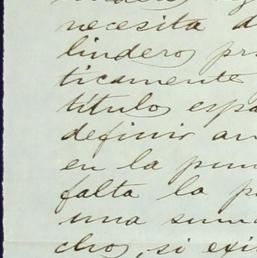 necesita d
linderos pri
ticamente
títulos espa
definir an
en la pun
falta la p
una suma
chos, si exi